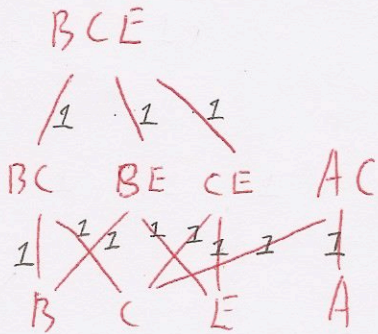 BCE
1 1 1
BC BE CE AC
1 1 1 1 1 1 1 1
B C E A